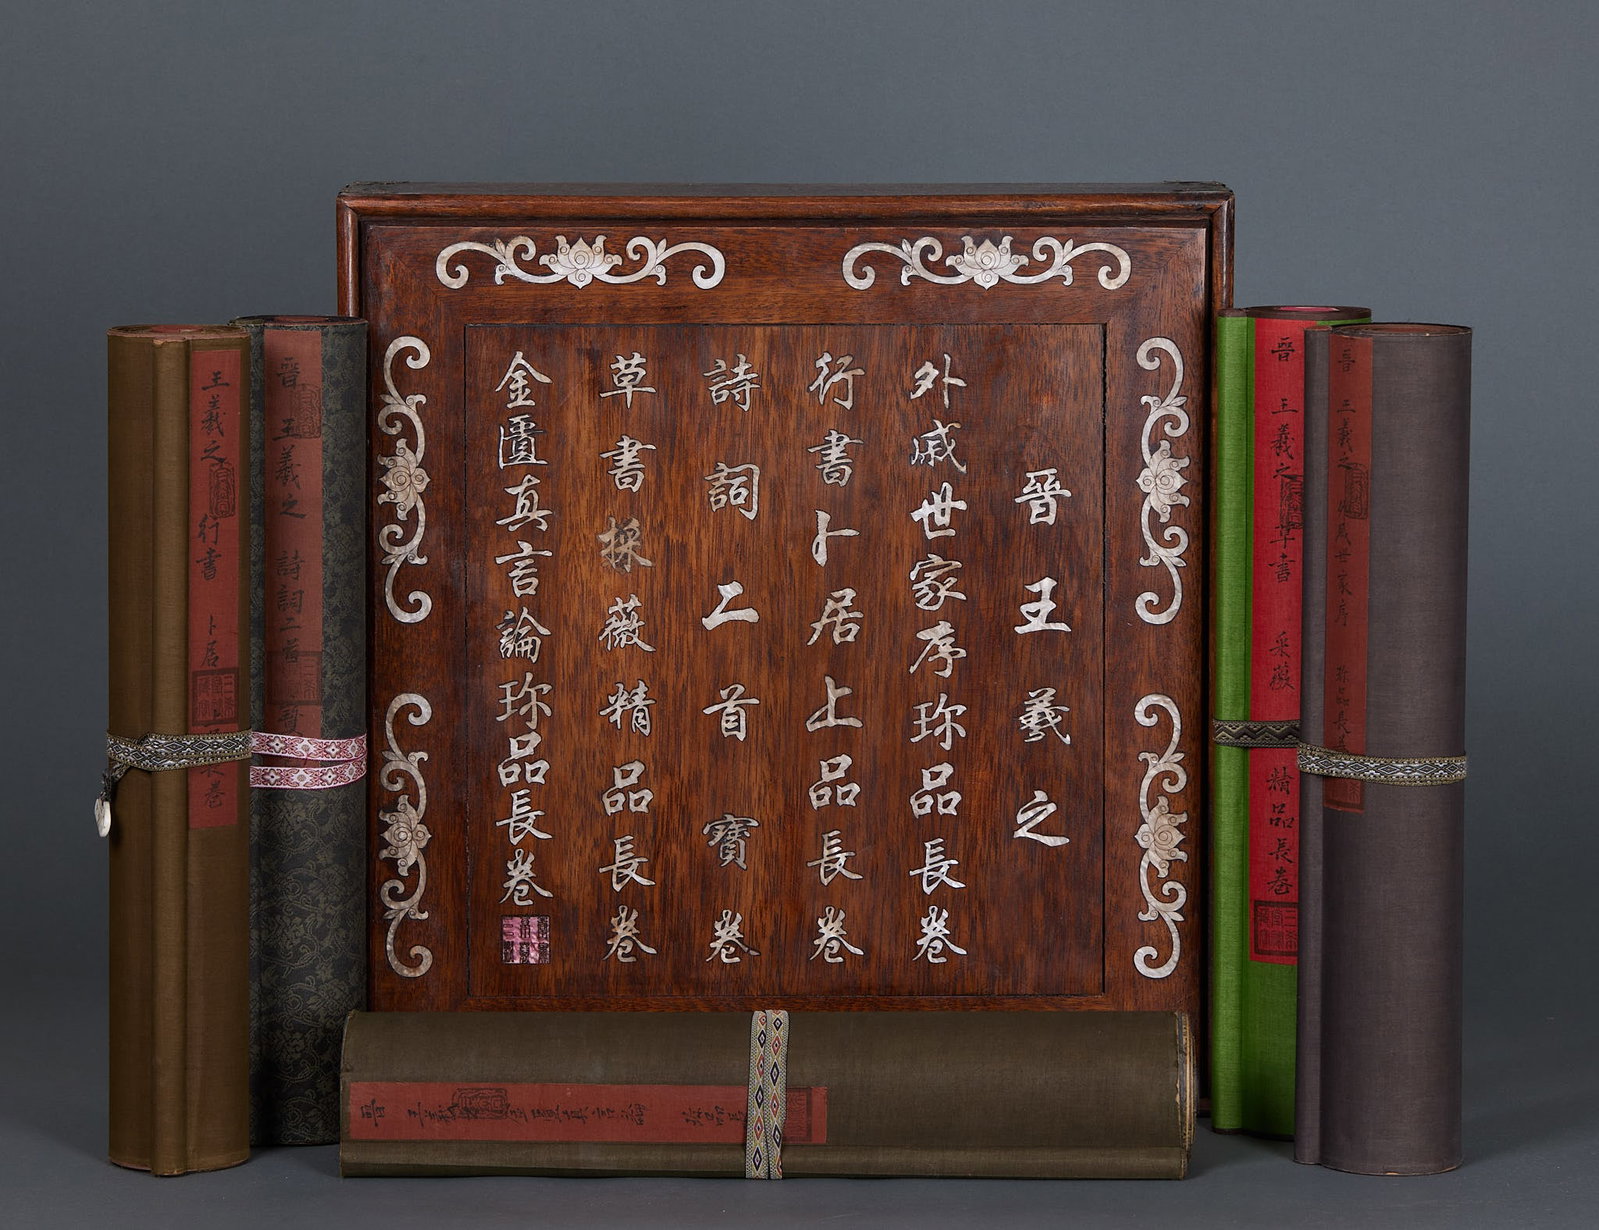 晉王羲之
外戚世家序珎品長卷
行書卜居上品長卷
詩詞二首寶卷
草書採薇精品長卷
金匱真言論珎品長卷
王羲之 行書 卜居
長卷
晉 王羲之 詩詞二首
晉 王羲之 草書 采薇 精品長卷
晉 王羲之 外戚世家序
品長
晉 王羲之 金匱真言論